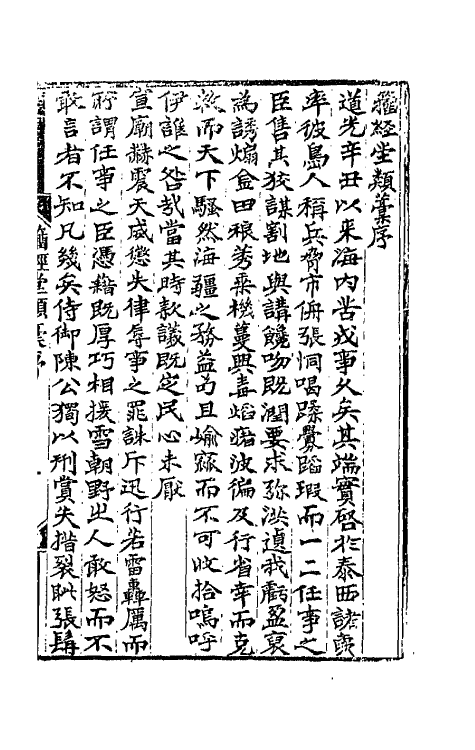 籀經堂類藁序
道光辛丑以來海內苦戎事久矣其端實啓於泰西諸夷
率彼鳥人稱兵脅市侜張恫喝蹂釁蹈瑕而一二任事之
臣售其狡謀割地與講饞吻既潤要求彌洪遉我虧盈裒
為誘煽盆田稂莠乘機蔓興毒焰痡波徧及行省幸而克
救而天下騷然海疆之務益苟且媮窳而不可收拾嗚呼
伊誰之咎哉當其時款議既定民心未厭
宣廟赫震天威懲失律辱事之罪誅斥迅行若雷轟厲而
所謂任事之臣憑藉既厚巧相援雪朝野出人敢怒而不
敢言者不知凡幾矣侍御陳公獨以刑賞失措裂眦張髯
籀經堂類藁序